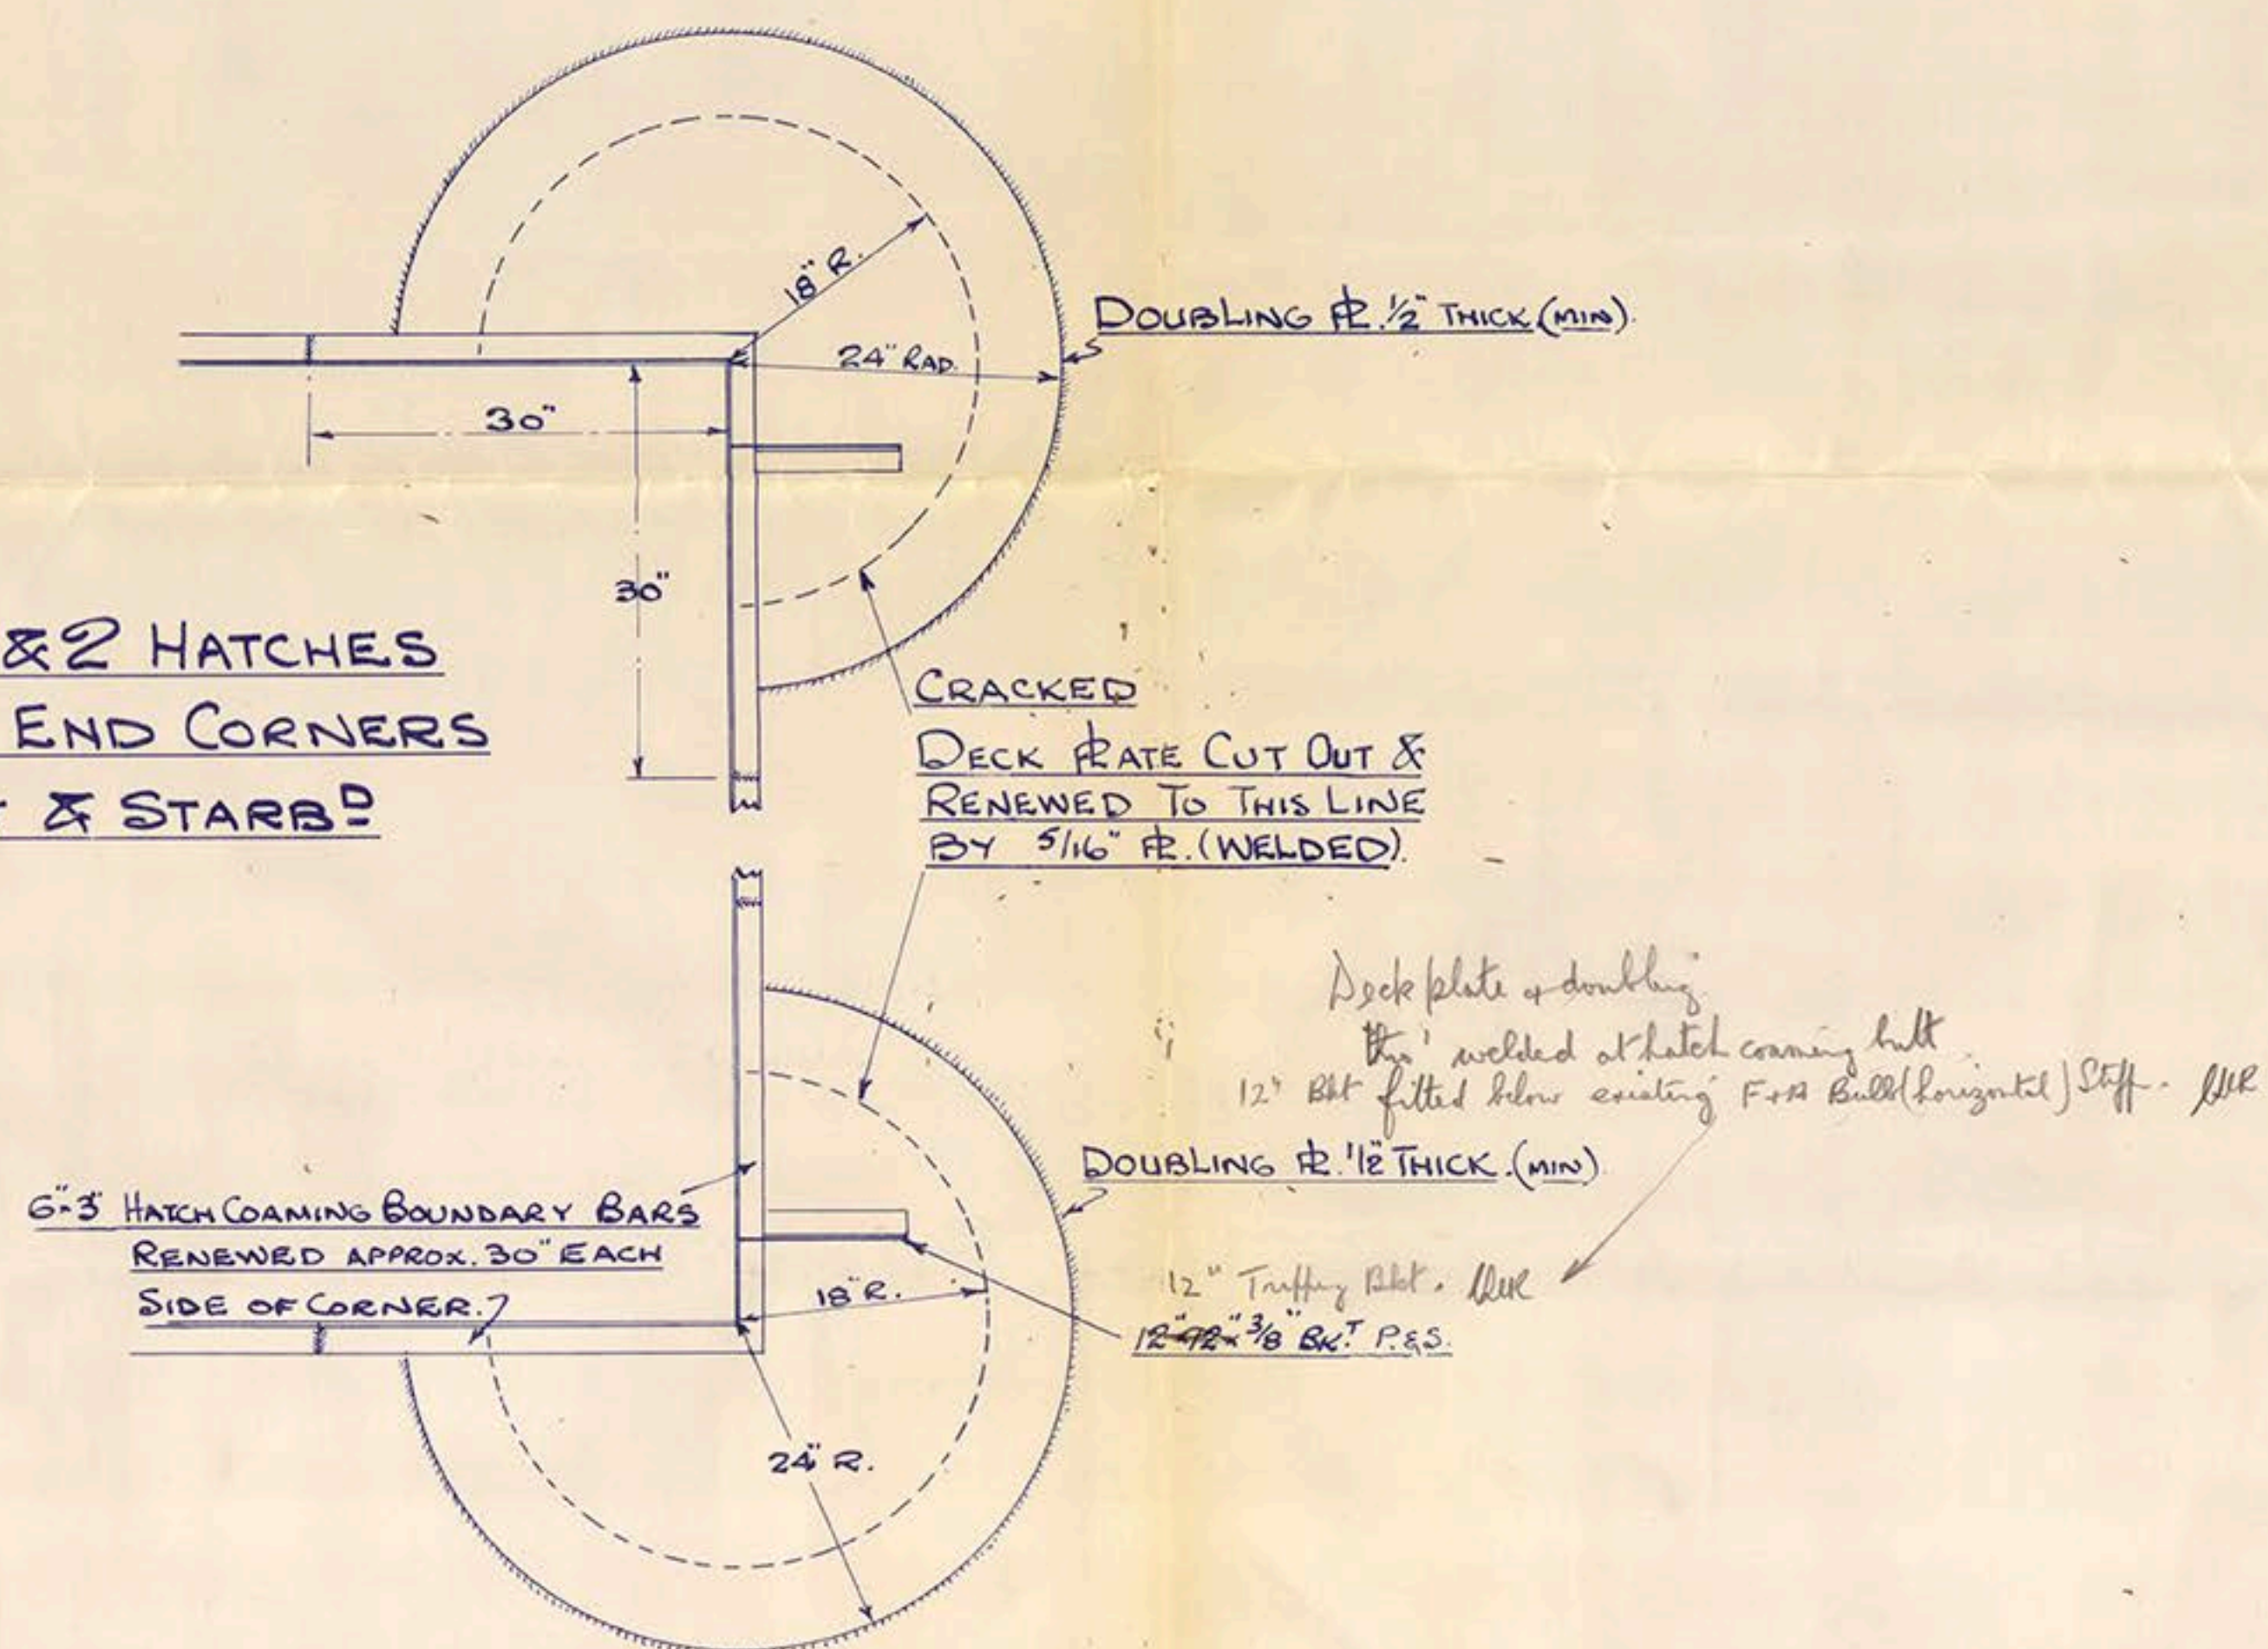 18" R.
DOUBLING PL. 1/2" THICK (MIN).
24" RAD.
30"
30"
&2 HATCHES
END CORNERS
& STARBD
CRACKED
DECK PLATE CUT OUT &
RENEWED TO THIS LINE
BY 5/16" PL. (WELDED).
Deck plate & doubling
thro' welded at hatch coaming butt
12" Bkt fitted below existing F+A Bulb (horizontal) Stiff.
DOUBLING PL. 1/2" THICK. (MIN)
6"-3" HATCH COAMING BOUNDARY BARS
RENEWED APPROX. 30" EACH
SIDE OF CORNER.
18" R.
12" Tripping Bkt.
12" 12" 3/8" BKT P.&S.
24" R.